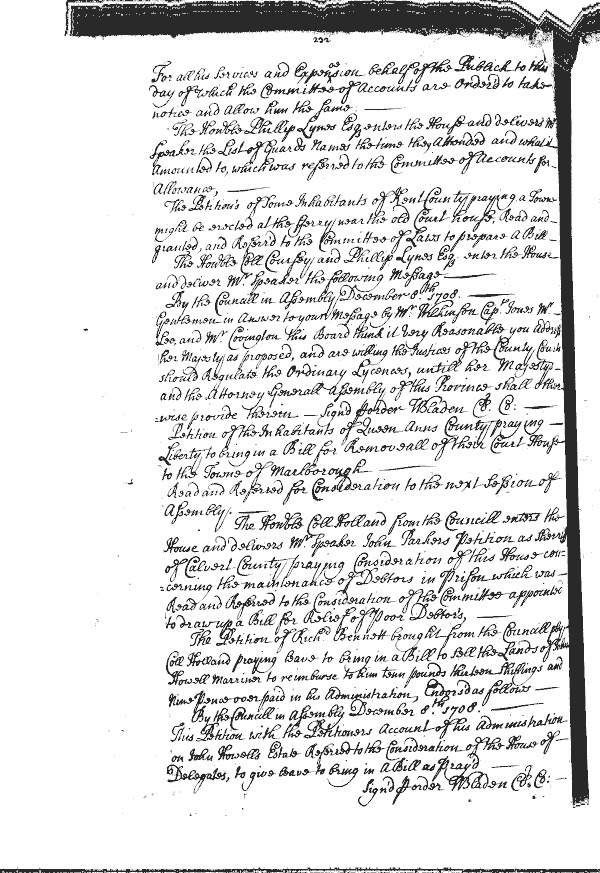 232
For all his Services and Expension behalf of the Publick to this
day of which the Committee of Accounts are Orderd to take
notice and Allow him the same.
The Honble Phillip Lynes Esq. enters the House and delivers Mr
Speaker the List of Guards Names the time they Attended and what it
amounted to, which was referred to the Committee of Accounts for
Allowance,
The Petition's of Some Inhabitants of Kent County praying a Town
might be erected at the fferry near the old Court house, Read and
granted, and Referrd to the Committee of Laws to prepare a Bill
The Honble Coll Coursey and Phillip Lynes Esq. enter the House
and deliver Mr. Speaker the following Message
By the Councill in Assembly December 8th 1708.
Gentlemen in Answer to your Message by Mr. Wilkinson Capt. Jones Mr.
Lee, and Mr. Covington this Board think it very Reasonable you address
her Majesty as proposed, and are willing the Justices of the County Courts
should Regulate the Ordinary Lycences, untill her Majesty
and the Attorney Generall Assembly of this Province shall other
=wise provide therein Signd ꝑorder WBladen Cl. C:
Petition of the Inhabitants of Queen Anns County praying
Liberty to bring in a Bill for Removeall of their Court House
to the Towne of Marlborough
Read and Referred for Consideration to the next Session of
Assembly.
The Honble Coll Holland from the Councill enters the
House and delivers Mr. Speaker John Parkers Petition as Sherriff
of Calvert County praying Consideration of this House con=
=cerning the maintenance of Debtors in Prison which was
Read and Referred to the Consideration of the Committee appointed
to draw up a Bill for Relief of Poor Debtors,
The Petition of Richd Bennett brought from the Councill by
Coll Holland praying leave to bring in a Bill to sell the Lands of John
Howell Marriner to reimburse to him tenn pounds thirteen Shillings and
Nine Pence over paid in his Administration, Endorsd as follows
By the Councill in Assembly December 8th. 1708.
This Petition with the Petitioners Account of his Administration
on John Howells Estate Referred to the Consideration of the House of
Delegates, to give leave to bring in a Bill as Prayd
Signd ꝑorder WBladen Cl. C: